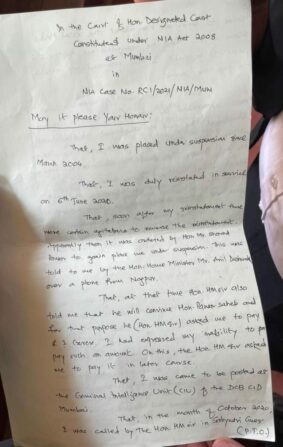 In the Court of Hon. Designated Court
Constituted under NIA Act 2008
at Mumbai
in
NIA Case No. RC1/2021/NIA/MUM
May it please Your Honour:
That, I was placed under suspension since
March 2004
That, I was duly reinstated in service
on 6th June 2020.
That, soon after my reinstatement there
were certain agitations to reverse the reinstatement.
Apparently then it was ordered by Hon. Mr. Sharad
Pawar to again place me under suspension. This was
told to me by the Hon. Home Minister Mr. Anil Deshmukh
over a phone from Nagpur.
That, at that time Hon. HM sir also
told me that he will convince Hon. Pawar saheb and
for that purpose he (Hon HM sir) asked me to pay
2 Crore. I had expressed my inability to pay
such an amount. On this, the Hon. HM sir asked
me to pay it in later course.
That, I was came to be posted at
the Criminal Intelligence Unit (CIU) of the DCB CID
Mumbai.
That, in the month of October 2020,
I was called by the Hon. HM sir in Sahyadri Guest
(P.T.O.)